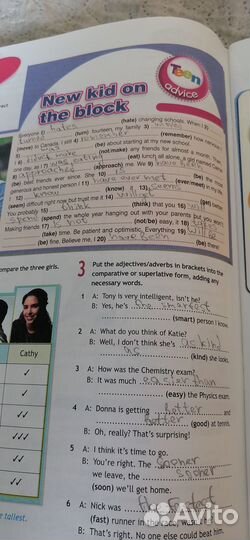 New kid on
the block
Teen
advice
Everyone 1) hates (hate) changing schools. When I 2)
turned (turn) fourteen, my family 3)
(move) to Canada. I still 4) (remember) how nervous I
5) was
6) (not/make) any friends for almost a month. Then
one day, as I 7) (eat) lunch all alone, a girl named
8) approaches (approach) me. We 9) have been
(be) best friends ever since. She 10)
and honest person I 11) have ever met (ever/meet) in my life.
I 12) know (know) it 13) seems
(seem) difficult right now but trust me! It 14)
You probably 15) think (think) that you 16) will
spend (spend) the whole year hanging out with your parents but you won't!
Making friends 17) (not/be) easy; it 18)
(take) time. Be patient and optimistic. Everything 19)
(be) fine. Believe me, I 20) have been (be) there!
compare the three girls.
Cathy
✓
✓
✓✓✓
✓✓
tallest.
3 Put the adjectives/adverbs in brackets into the
comparative or superlative form, adding any
necessary words.
1 A: Tony is very intelligent, isn't he?
B: Yes, he's the smartest
(smart) person I know.
2 A: What do you think of Katie?
B: Well, I don't think she's as kind
as (kind) she looks.
3 A: How was the Chemistry exam?
B: It was much easier than
(easy) the Physics exam.
4 A: Donna is getting better and
better (good) at tennis.
B: Oh, really? That's surprising!
5 A: I think it's time to go.
B: You're right. The sooner
we leave, the sooner
(soon) we'll get home.
6 A: Nick was
(fast) runner in the race, wasn't he?
B: That's right. No one else could beat him.
Avito